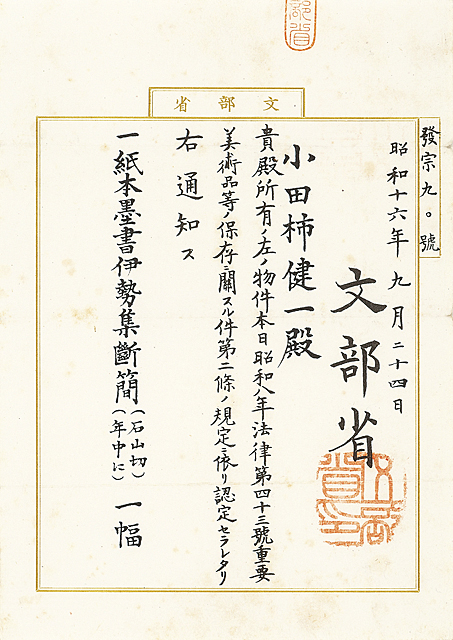 文部省
發宗九〇號
昭和十六年九月二十四日
文部省
小田柿健一殿
貴殿所有ノ左ノ物件本日昭和八年法律第四十三號重要
美術品等ノ保存ニ關スル件第二條ノ規定ニ依リ認定セラレタリ
右通知ス
一紙本墨書伊勢集斷簡(石山切)(年中に)一幅